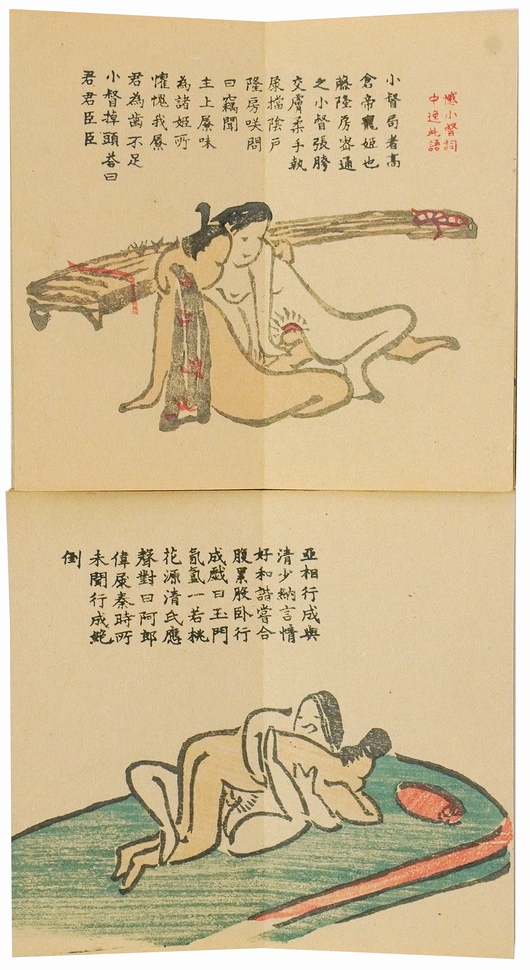 憾小督詞
中逸此語
小督局者高
倉帝寵姬也
藤隆房密通
之小督張胯
交膚柔手執
屪描陰戶
隆房咲問
曰竊聞
主上屪味
為諸姬所
懼愧我屪
君為齒不足
小督掉頭荅曰
君君臣臣
亞相行成與
清少納言情
好和諧嘗合
腹累股卧行
成戲曰玉門
氤氳一若桃
花源清氏應
聲對曰阿郎
偉屪秦時所
未聞行成絕
倒